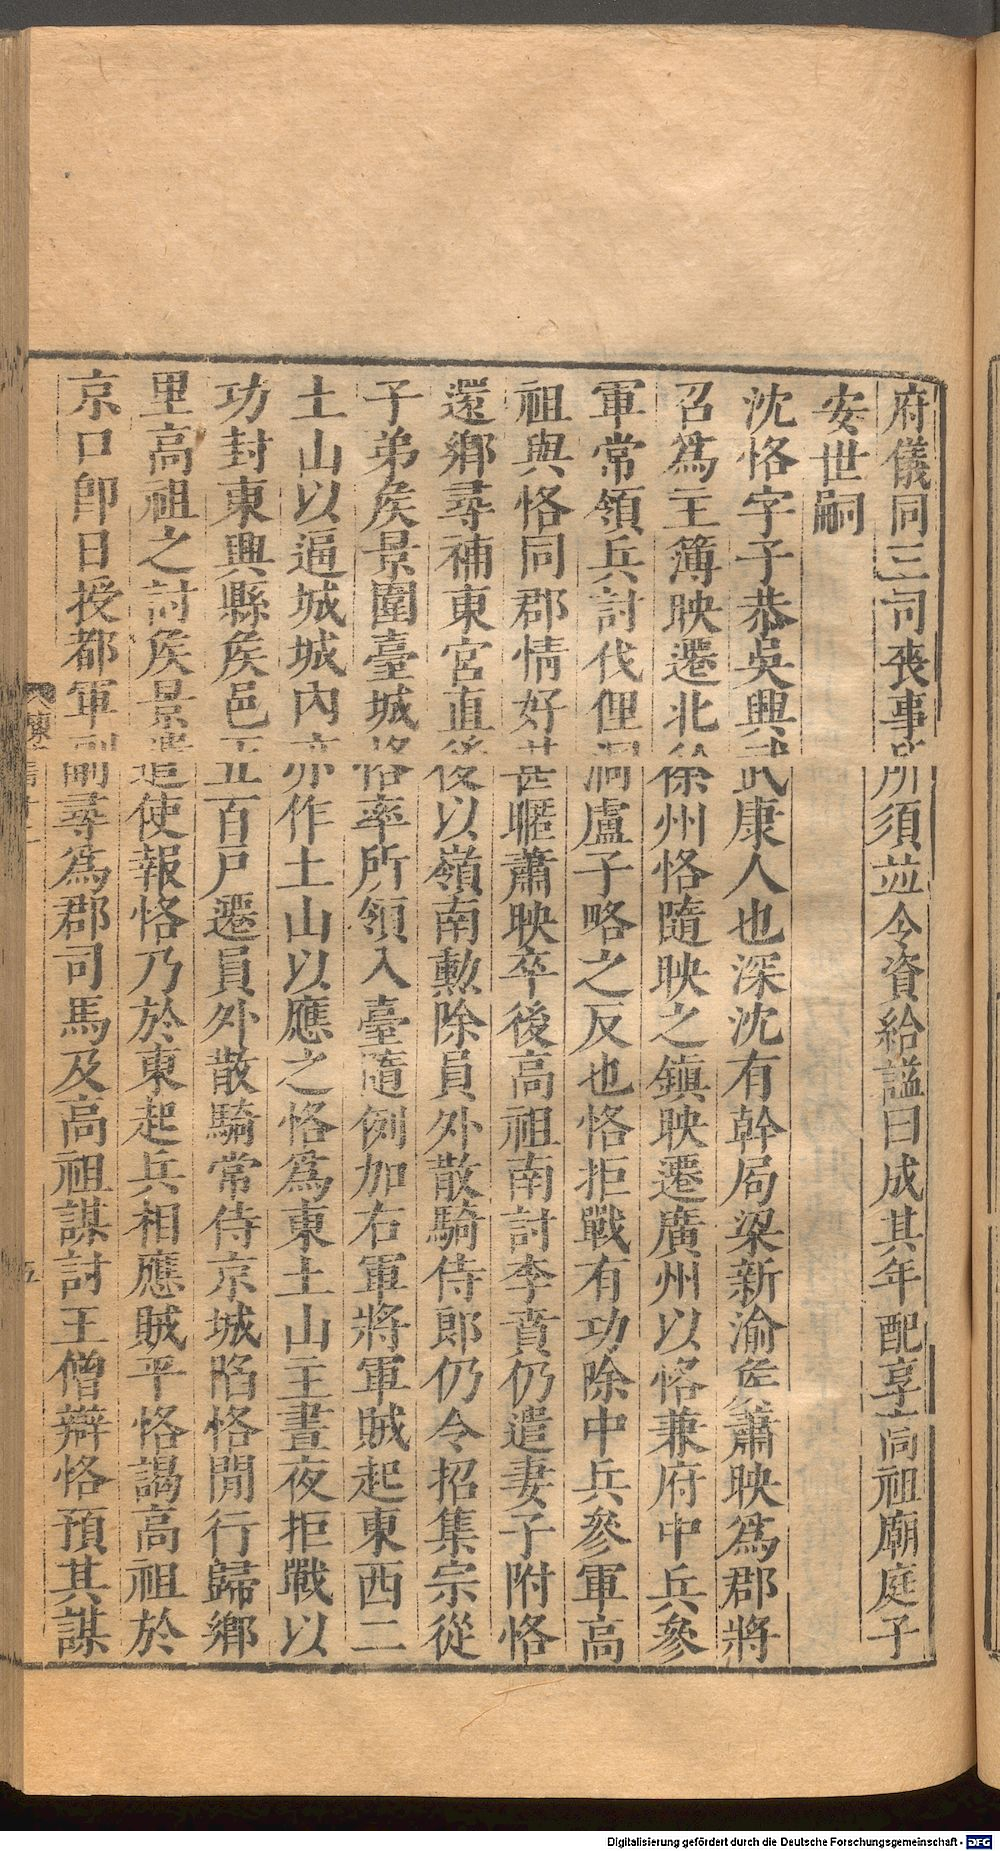 府儀同三司喪事所須並令資給謚曰成其年配享高祖廟庭子
安世嗣
沈恪字子恭吳興武康人也深沈有幹局梁新渝矦蕭映爲郡將
召爲主簿映遷北徐州恪隨映之鎮映遷廣州以恪兼府中兵參
軍常領兵討伐俚洞盧子略之反也恪拒戰有功除中兵參軍高
祖與恪同郡情好甚暱蕭映卒後高祖南討李賁仍遣妻子附恪
還鄉尋補東宮直後以嶺南勲除員外散騎侍郎仍令招集宗從
子弟矦景圍臺城恪率所領入臺隨例加右軍將軍賊起東西二
土山以逼城城內亦作土山以應之恪爲東土山主晝夜拒戰以
功封東興縣矦邑五百戸遷員外散騎常侍京城陷恪閒行歸鄉
里高祖之討矦景遣使報恪乃於東起兵相應賊平恪謁高祖於
京口卽日授都軍副尋爲郡司馬及高祖謀討王僧辯恪預其謀
Digitalisierung gefördert durch die Deutsche Forschungsgemeinschaft - DFG